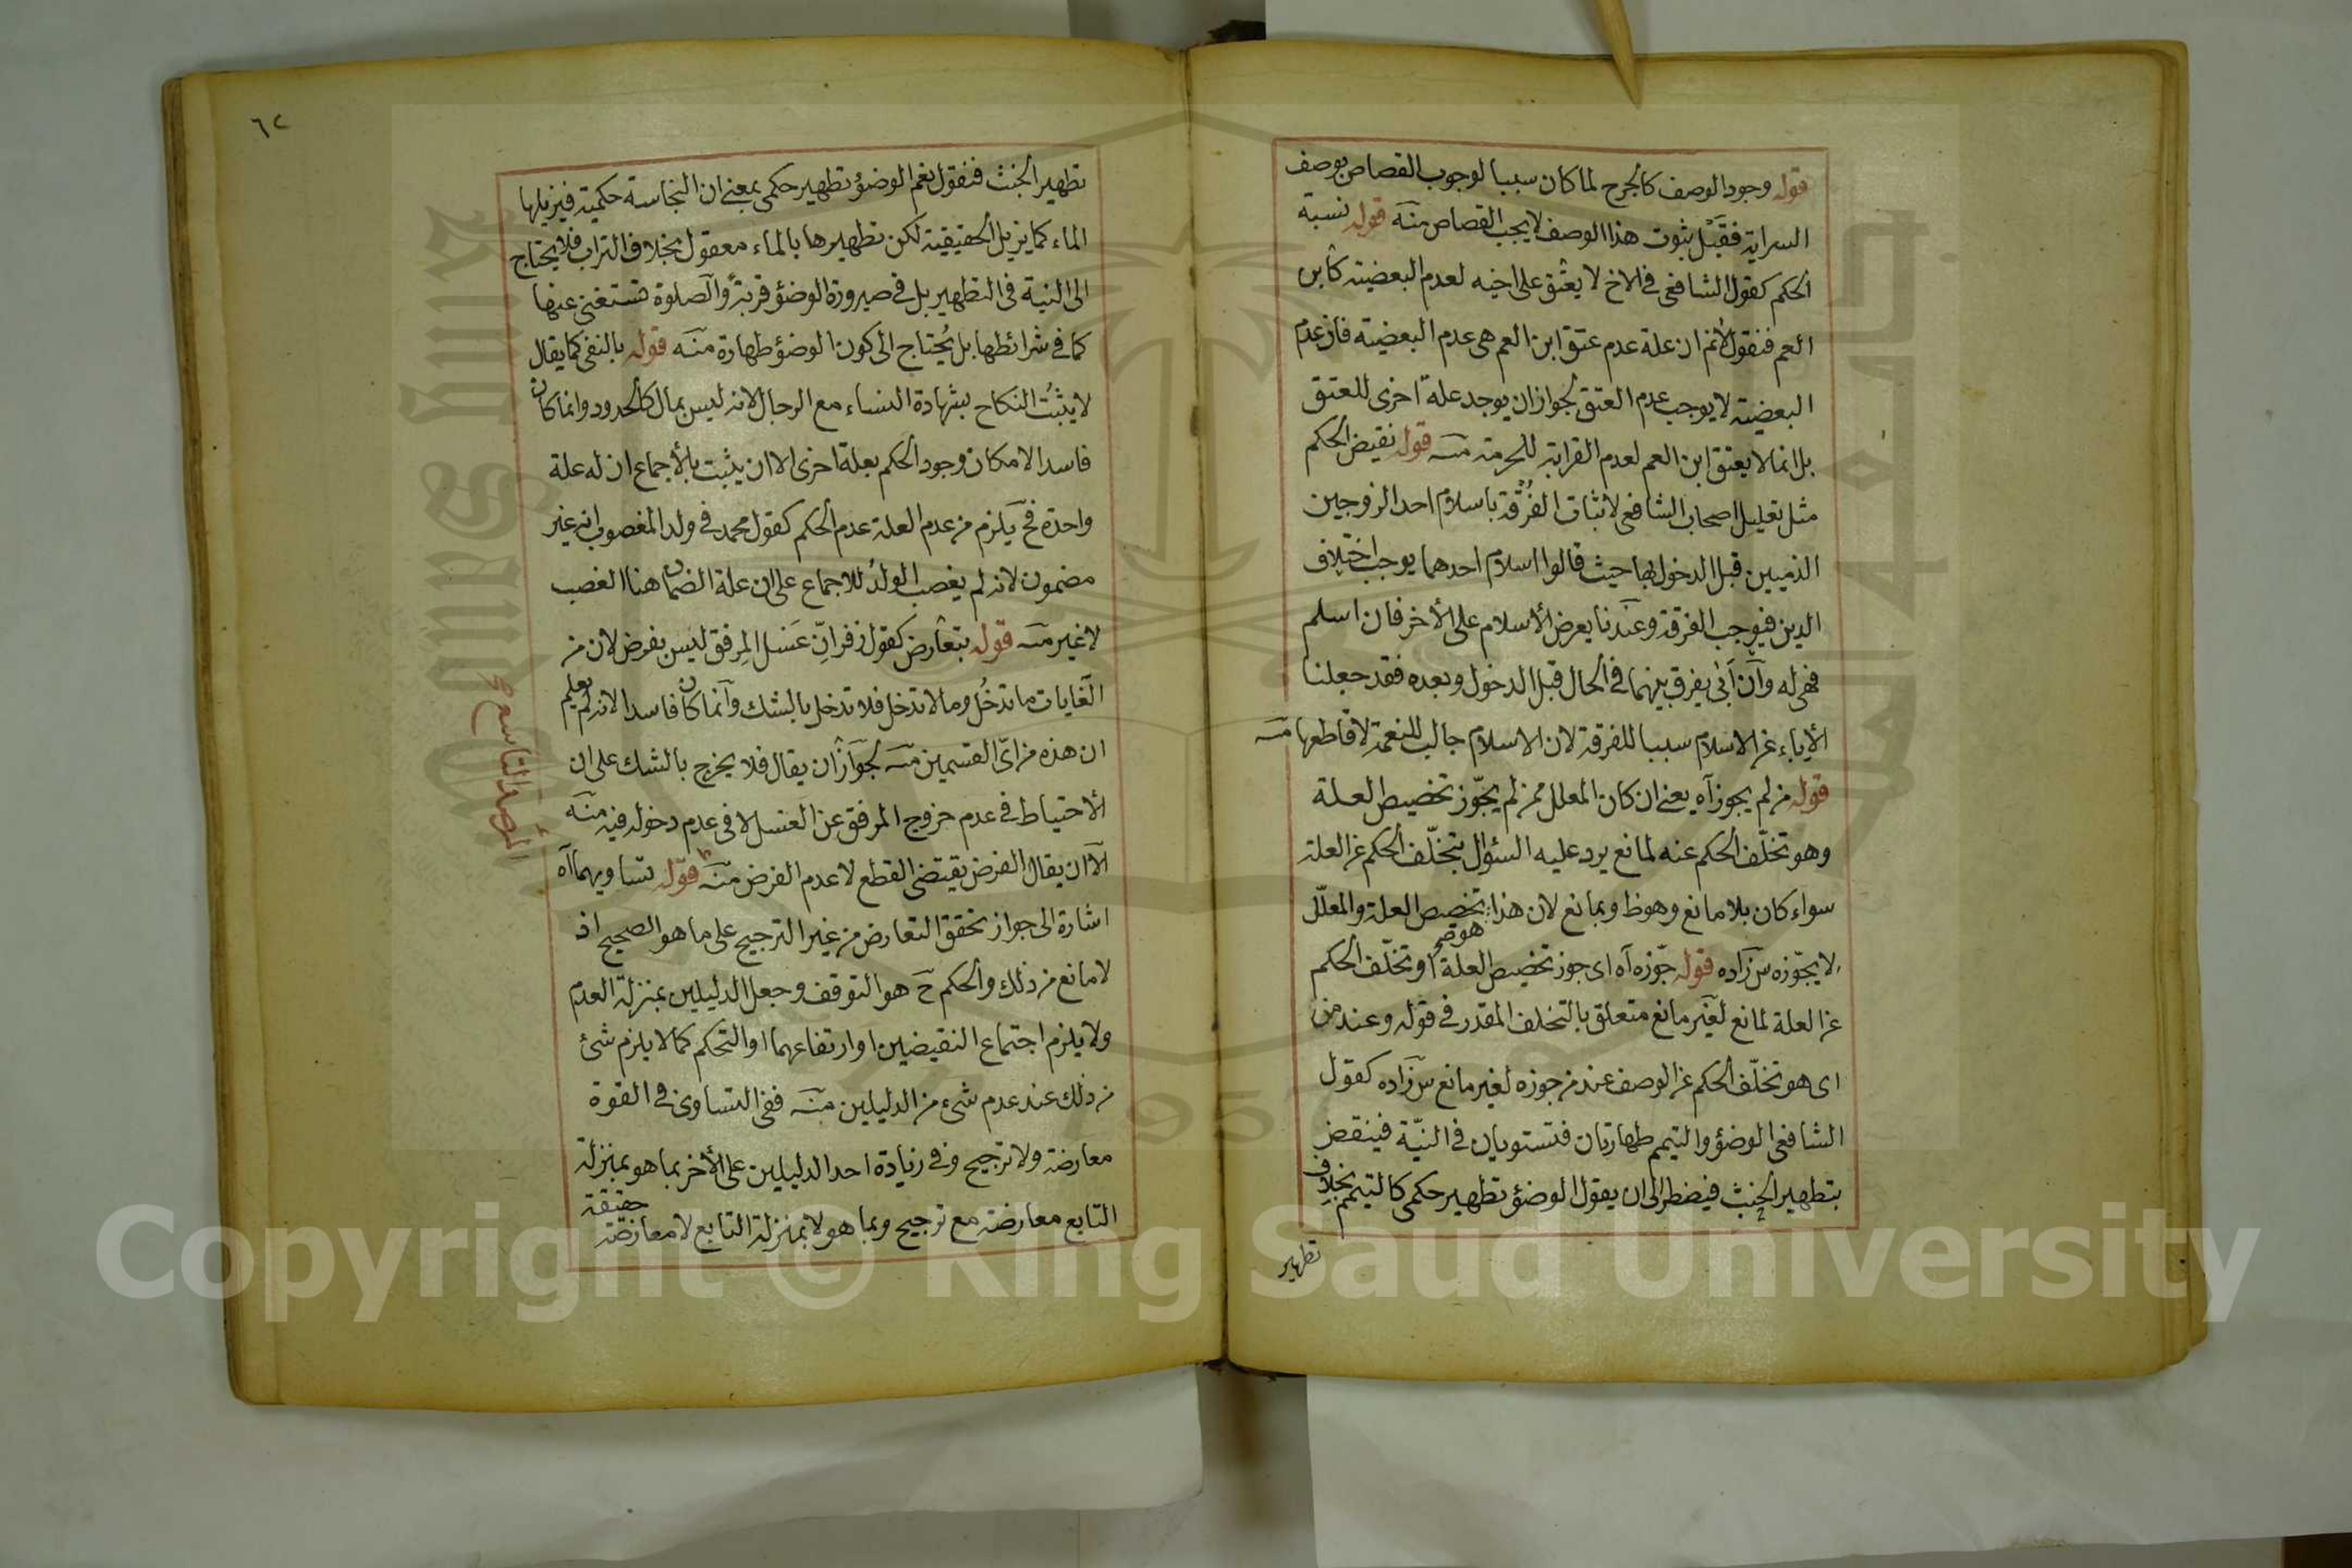 قوله وجود الوصف كالجرح لما كان سببا لوجوب القصاص بوصف
السراية فقبل ثبوت هذا الوصف لا يجب القصاص منه قوله نسبة
الحكم كقول الشافعى فى الاخ لا يعتق على اخيه لعدم البعضية كابن
العم فنقول لانم ان علة عدم عتق ابن العم هى عدم البعضية فان عدم
البعضية لا يوجب عدم العتق لجواز ان يوجد علة اخرى للعتق
بل انما لا يعتق ابن العم لعدم القرابة للحرمة منه قوله نقيض الحكم
مثل تعليل اصحاب الشافعى لاثبات الفرقة باسلام احد الزوجين
الذميين قبل الدخول بها حيث قالوا اسلام احدهما يوجب اختلاف
الدين فيوجب الفرقة وعندنا يعرض الأسلام على الأخر فان اسلم
فهى له وان ابى يفرق بينهما فى الحال قبل الدخول وبعده فقد جعلنا
الأباء عن الاسلام سببا للفرقة لان الاسلام جالب للنعمة لا قاطعها منه
قوله من لم يجوز آه يعنى ان كان المعلل ممن لم يجوّز تخصيص العلة
وهو تخلّف الحكم عنه لمانع يرد عليه السئوال بتخلّف الحكم عن العلة
سواء كان بلا مانع وهو ظ وبمانع لان هذا تخصيص العلة والمعلّل
لا يجوّزه س زاده قوله جوّزه آه اى جوز تخصيص العلة او تخلّف الحكم
هو
عن العلة لمانع لغير مانع متعلق بالتخلف المقدر فى قوله وعند من
اى هو تخلّف الحكم عن الوصف عند من جوزه لغير مانع س زاده كقول
الشافعى الوضؤ والتيمم طهارتان فتستويان فى النيّة فينقض
بتطهير الخبث فيضطر الى ان يقول الوضؤ تطهير حكمى كالتيمم بخلاف
تطهير
٦٢
تطهير الخبث فنقول نعم الوضؤ تطهير حكمى بمعنى ان النجاسة حكمية فيزيلها
الماء كما يزيل الحقيقية لكن تطهيرها بالماء معقول بخلاف التراب فلا يحتاج
الى النية فى التطهير بل فى صيرورة الوضؤ قربة والصلوة تستغنى عنها
كما فى شرائطها بل يحتاج الى كون الوضؤ طهارة منه قوله بالنفى كما يقال
لا يثبت النكاح بشهادة النساء مع الرجال لانه ليس بمال كالحدود وانما كان
فاسدا لامكان وجود الحكم بعلة اخرى الا ان يثبت بالأجماع ان له علة
واحدة فح يلزم من عدم العلة عدم الحكم كقول محمد فى ولد المغصوب انه غير
مضمون لانه لم يغصب الولد للاجماع على ان علة الضمان هنا الغصب
لا غير منه قوله بتعارض كقول زفر انّ غسل المرفق ليس بفرض لان من
الغايات ما تدخل وما لا تدخل فلا تدخل بالشك وانما كان فاسدا لانه لم يعلم
ان هذه من اىّ القسمين منه لجواز ان يقال فلا يخرج بالشك على ان
الأحتياط فى عدم خروج المرفق عن الغسل لا فى عدم دخوله فيه منه
الا ان يقال الفرض يقتضى القطع لا عدم الفرض منه قوله تساويهما آه
اشارة الى جواز تحقق التعارض من غير الترجيح على ما هو الصحيح اذ
لا مانع من ذلك والحكم ح هو التوقف وجعل الدليلين بمنزلة العدم
ولا يلزم اجتماع النقيضين او ارتفاعهما او التحكم كما لا يلزم شئ
من ذلك عند عدم شئ من الدليلين منه ففى التساوى فى القوة
معارضة ولا ترجيح وفى زيادة احد الدليلين على الأخر بما هو بمنزلة
التابع معارضة مع ترجيح وبما هو لا بمنزلة التابع لا معارضة
حقيقة
المرصد التاسع
Copyright © King Saud University